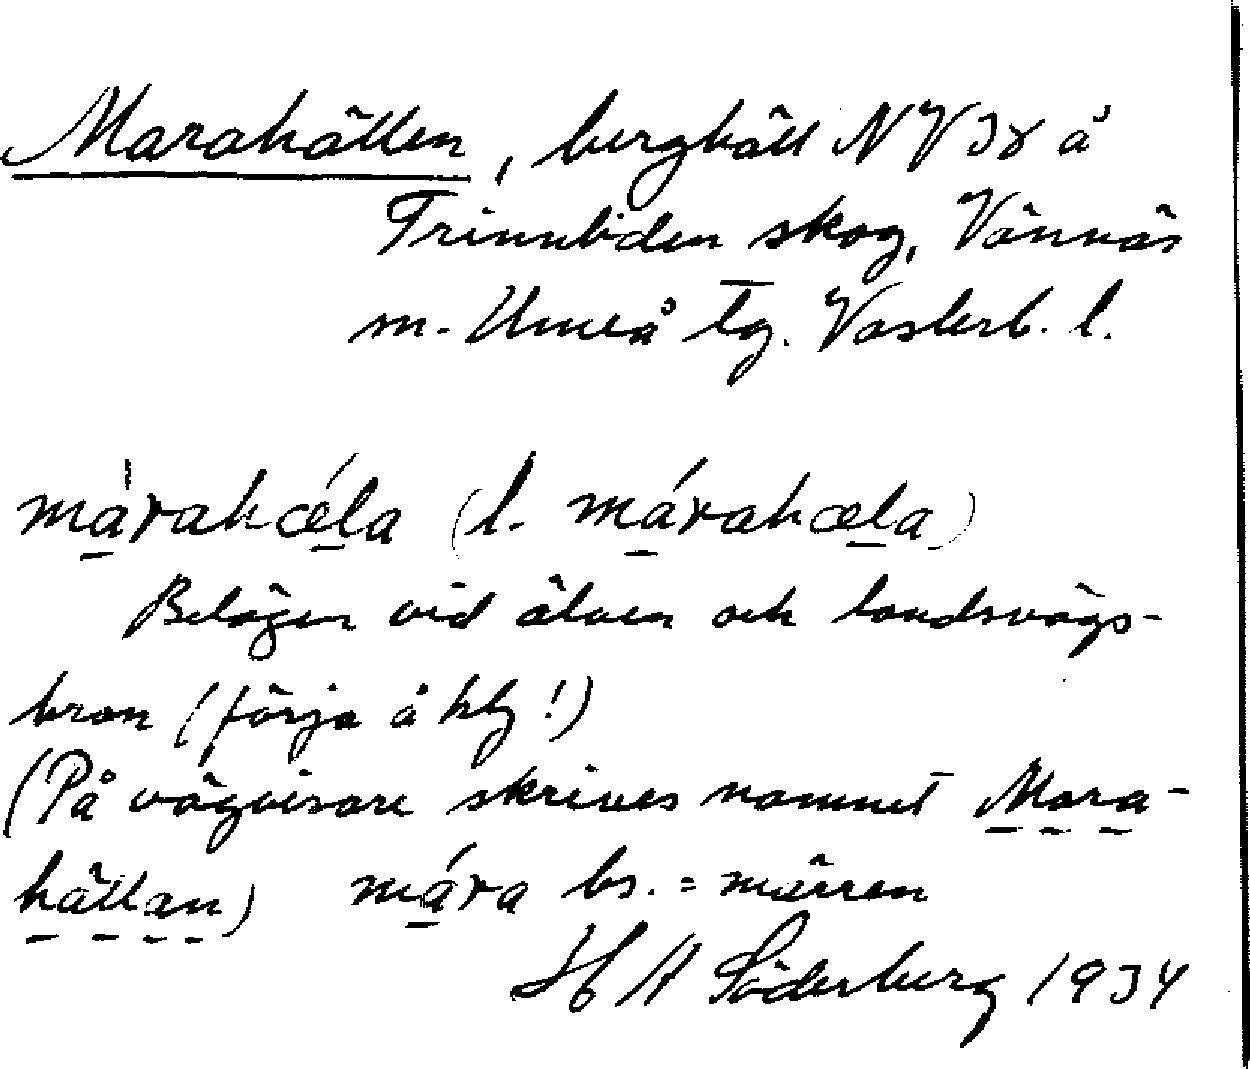 Marahällen, berghäll NV om å
Trinnliden skog, Vännäs
m. Umeå tg. Västerb. l.
márahǽla (l. márahæla)
Belägen vid älven och landsvägs-
bron (färja å kbg!)
(På vägvisare skrives namnet Mara-
hällan) mára bs. = märren
H A Söderberg 1934